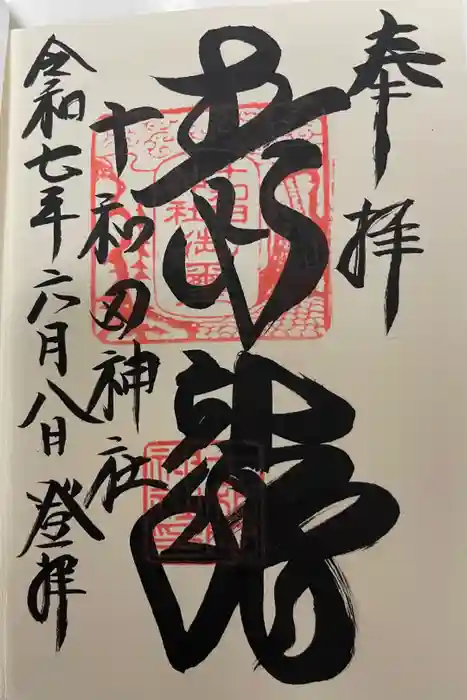 奉拝
青龍
十和田神社
令和七年六月八日 登拝